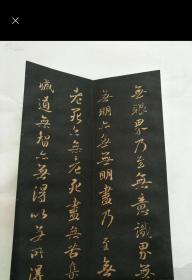 無眼界乃至無意識界無
無明亦無無明盡乃至無
老死亦無老死盡無苦集
滅道無智亦無得以無所得